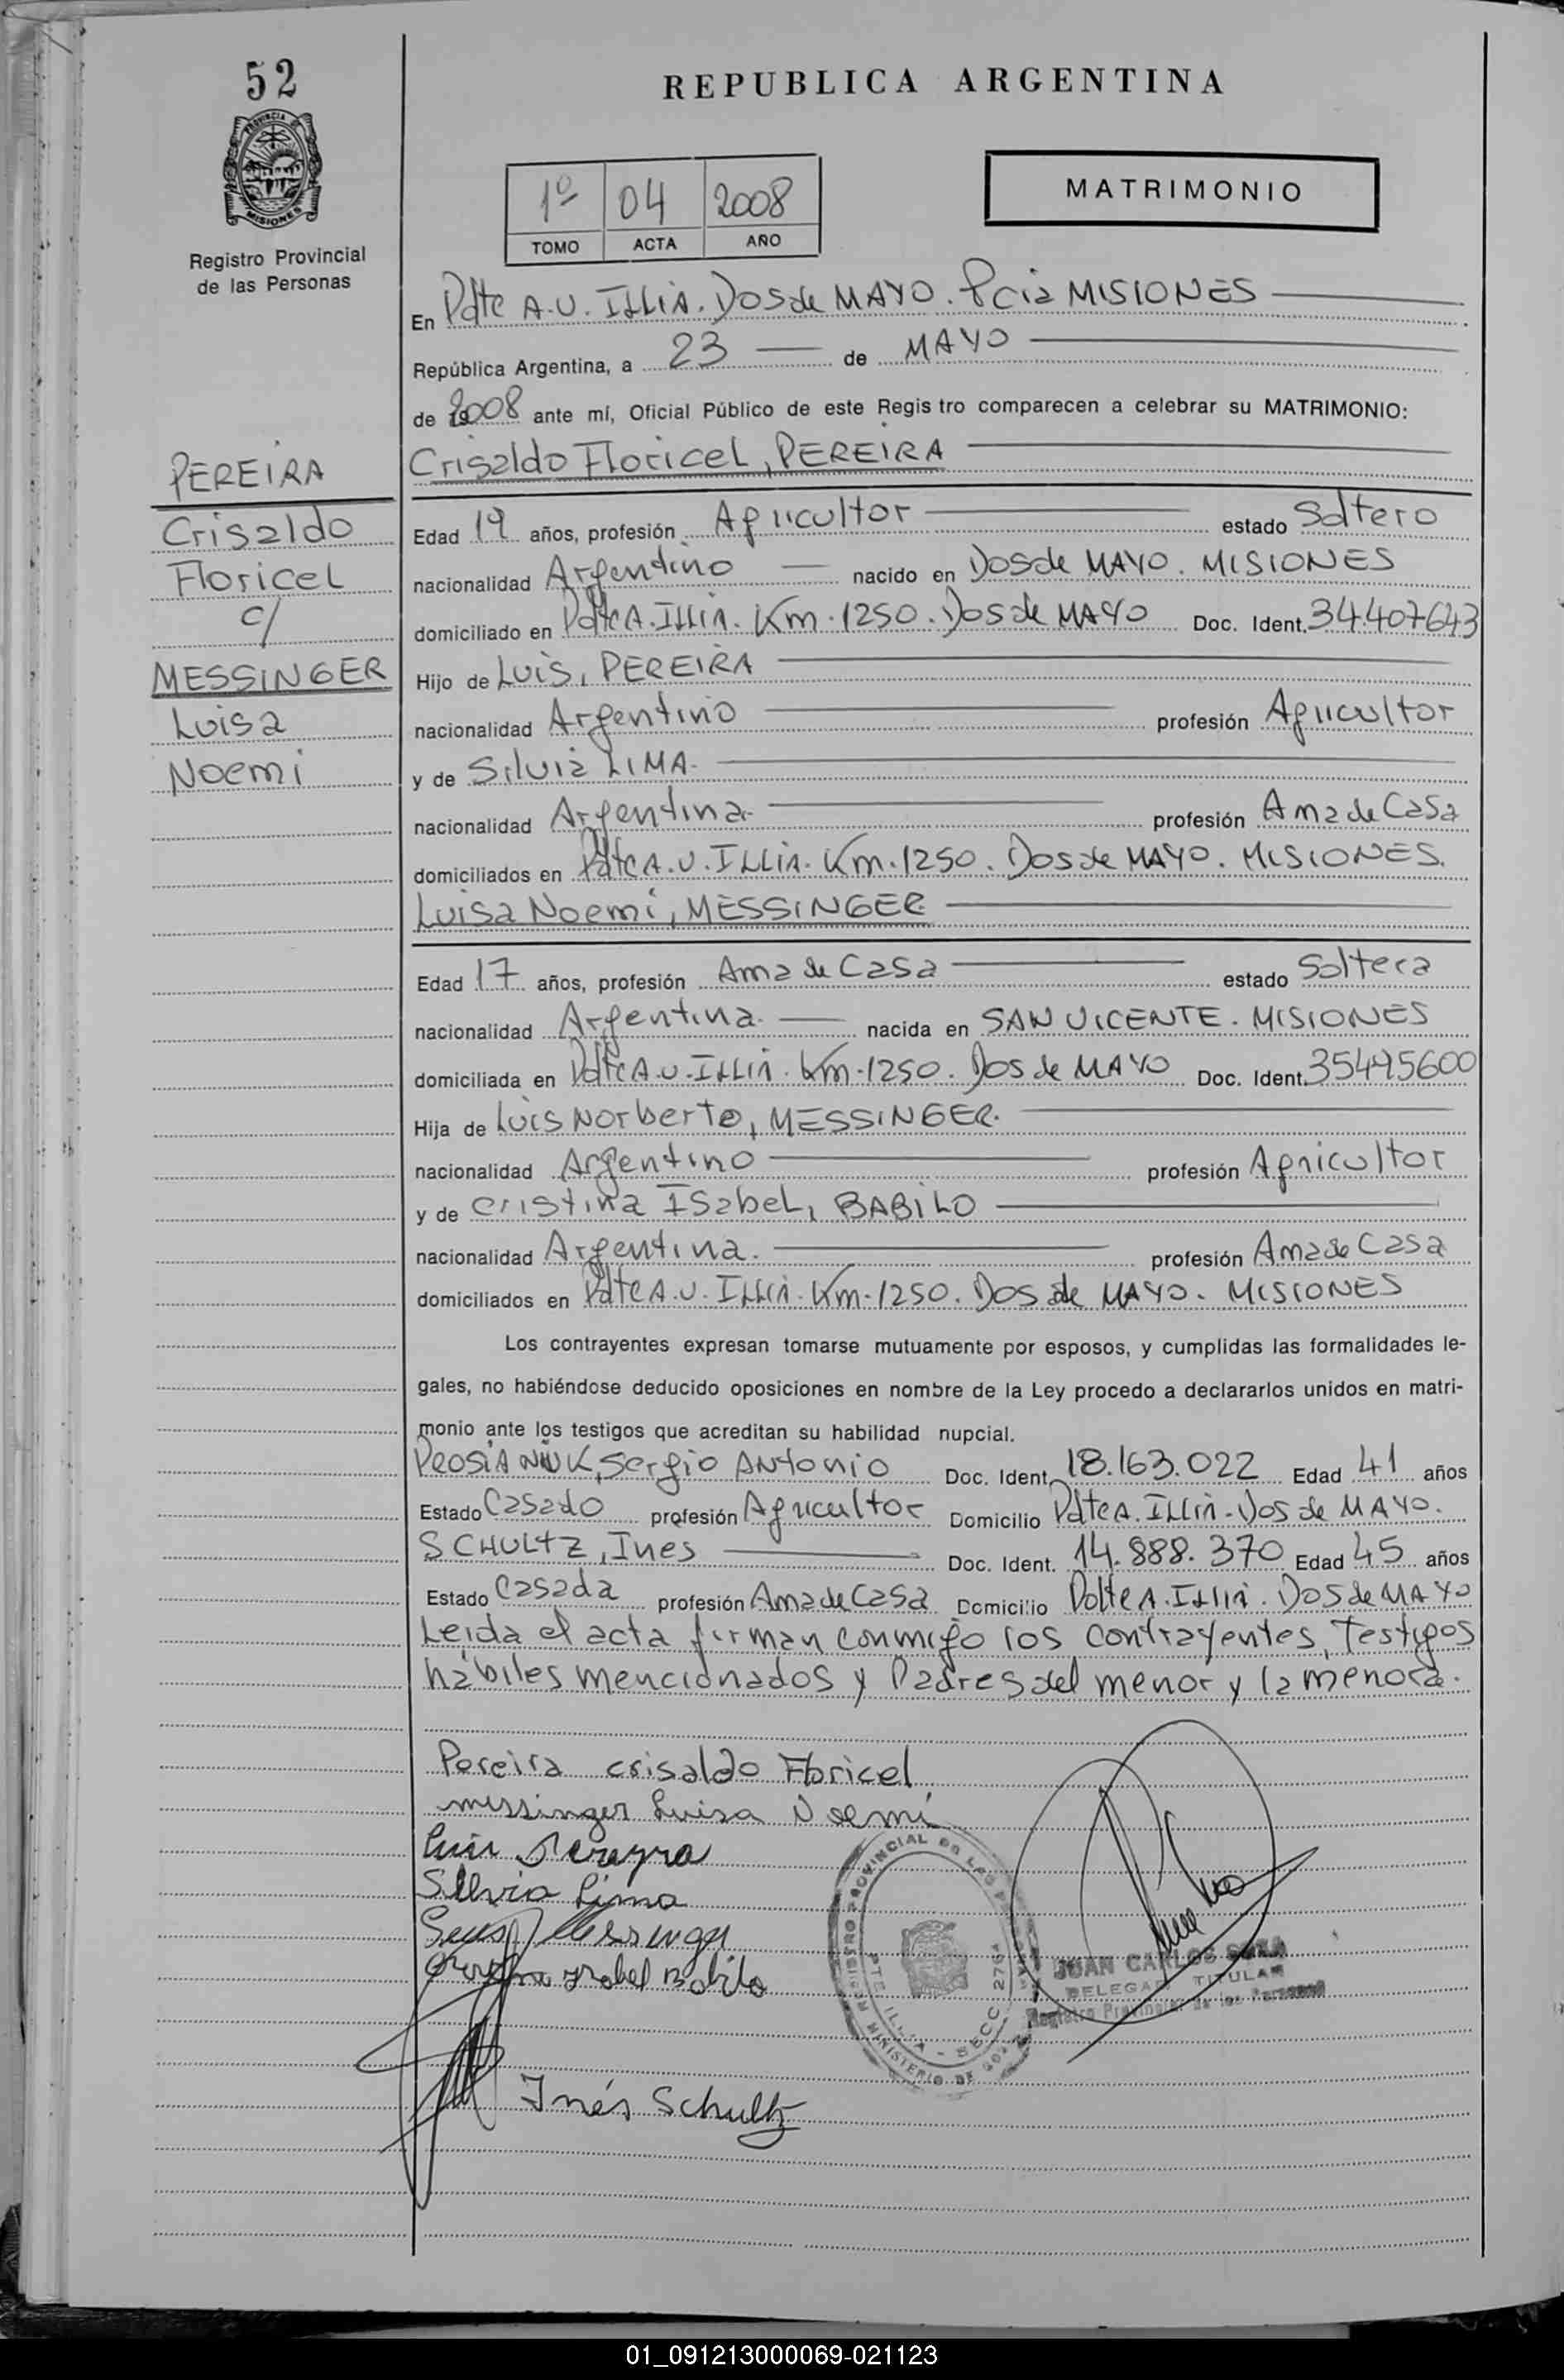 52
REPUBLICA ARGENTINA
PROVINCIA
MISIONES
Registro Provincial
de las Personas
1º 04 2008
TOMO ACTA AÑO
MATRIMONIO
En Pdte A.U. ILLIA. Dos de MAYO. Pcia MISIONES
República Argentina, a 23 de MAYO
de 2008 ante mí, Oficial Público de este Regis tro comparecen a celebrar su MATRIMONIO:
PEREIRA
Crisaldo
Floricel
c/
MESSINGER
Luisa
Noemi
Crisaldo Floricel, PEREIRA
Edad 19 años, profesión Agricultor estado Soltero
nacionalidad Argentino nacido en Dos de MAYO. MISIONES
domiciliado en Pdte A. Illia. Km. 1250. Dos de MAYO Doc. Ident. 34.407643
Hijo de Luis, PEREIRA
nacionalidad Argentino profesión Agricultor
y de Silvia LIMA
nacionalidad Argentina profesión Ama de Casa
domiciliados en Pdte A.U. ILLIA. Km. 1250. Dos de MAYO. MISIONES.
Luisa Noemi, MESSINGER
Edad 17 años, profesión Ama de Casa estado Soltera
nacionalidad Argentina nacida en SAN VICENTE. MISIONES
domiciliada en Pdte A.U. ILLIA. Km. 1250. Dos de MAYO Doc. Ident. 35495600
Hija de Luis Norberto, MESSINGER.
nacionalidad Argentino profesión Agricultor
y de Cristina Isabel, BABILO
nacionalidad Argentina. profesión Ama de Casa
domiciliados en Pdte A.U. ILLIA. Km. 1250. Dos de MAYO. MISIONES
Los contrayentes expresan tomarse mutuamente por esposos, y cumplidas las formalidades le-
gales, no habiéndose deducido oposiciones en nombre de la Ley procedo a declararlos unidos en matri-
monio ante los testigos que acreditan su habilidad nupcial.
PROSIANIUK, Sergio ANtonio Doc. Ident. 18.163.022 Edad 41 años
Estado Casado profesión Agricultor Domicilio Pdte A. ILLIA. Dos de MAYO.
SCHULTZ, Ines Doc. Ident. 14.888.370 Edad 45 años
Estado Casada profesión Ama de Casa Domicilio Pdte A. Illia. Dos de MAYO
Leida el acta firman conmigo los contrayentes, Testigos
habiles mencionados y Padres del menor y la menora.
Pereira crisaldo Floricel
messinger Luisa Noemí
Luis Pereyra
Silvia Lima
Luis Messinger
Cristina Isabel Babilo
Inés Schultz
REGISTRO PROVINCIAL DE LAS
PTE ILLIA - SECC 2764
MINISTERIO DE
JUAN CARLOS SOSA
DELEGADO TITULAR
Registro Provincial de las Personas
01_091213000069-021123